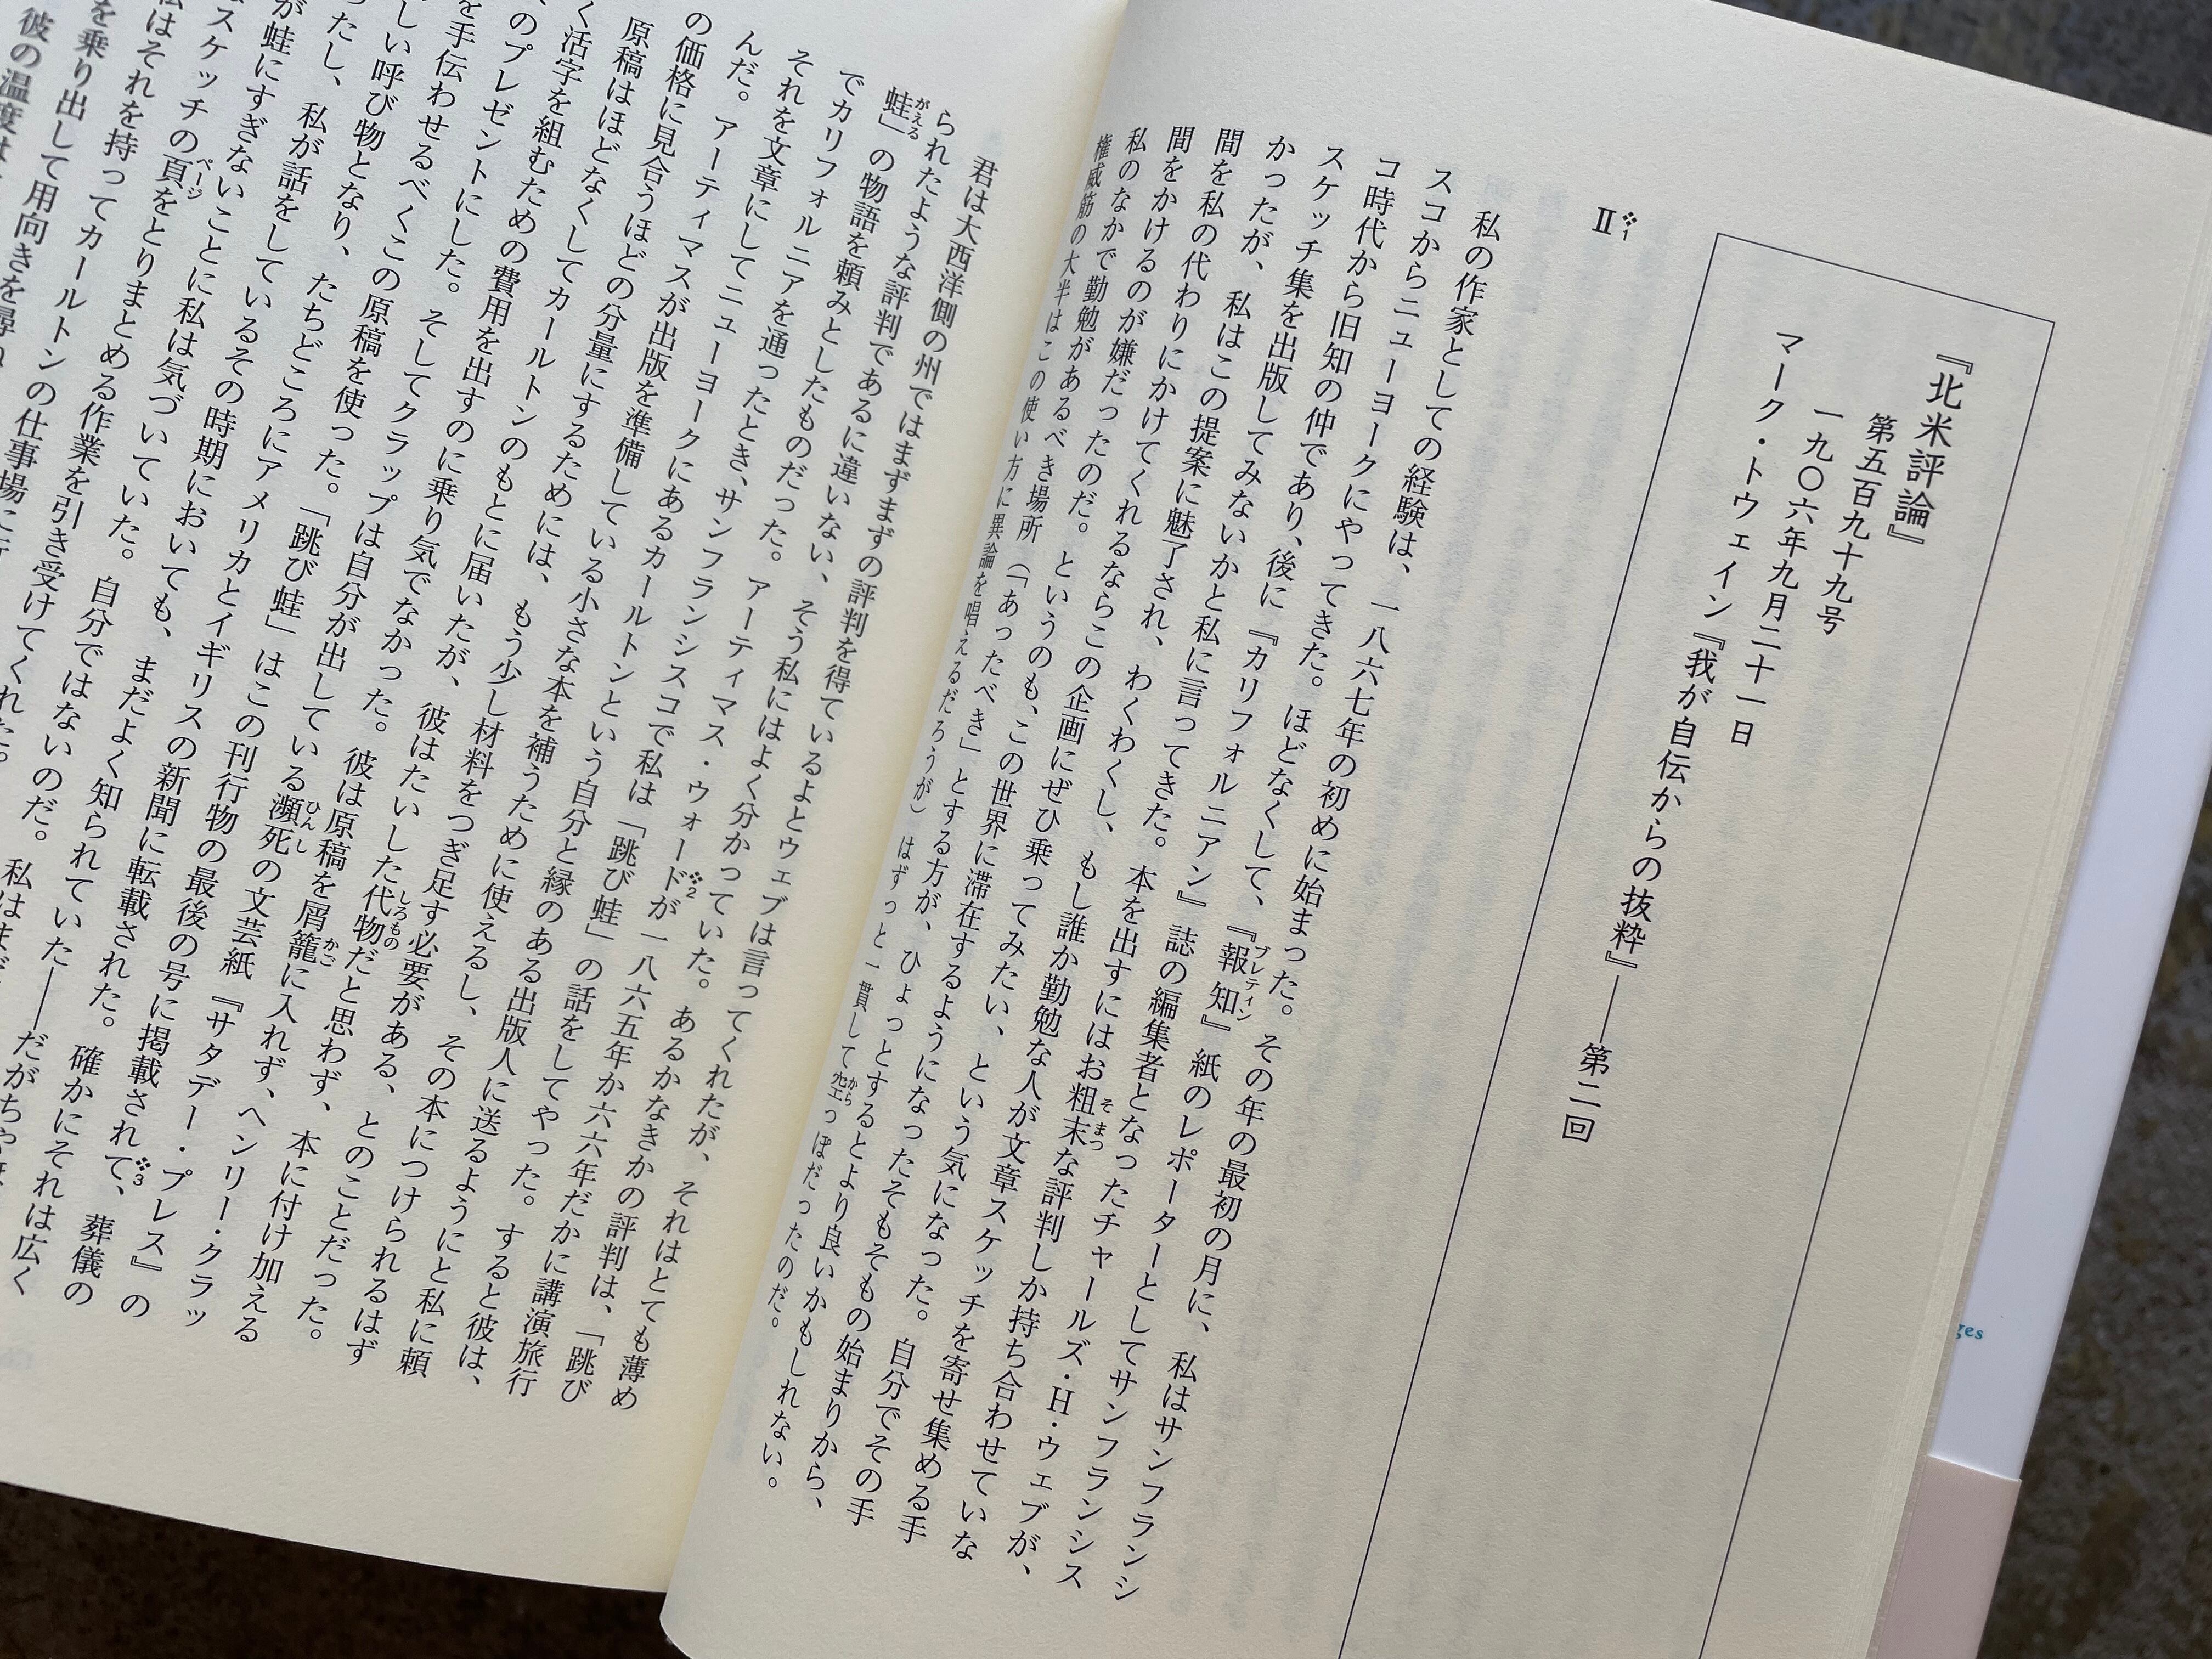 『北米評論』
第五百九十九号
一九〇六年九月二十一日
マーク・トウェイン『我が自伝からの抜粋』――第二回
Ⅱ 1
私の作家としての経験は、一八六七年の初めに始まった。その年の最初の月に、私はサンフランシ
スコからニューヨークにやってきた。ほどなくして、『報知』紙のレポーターとしてサンフランシス
コ時代から旧知の仲であり、後に『カリフォルニアン』誌の編集者となったチャールズ・H・ウェブが、
スケッチ集を出版してみないかと私に言ってきた。本を出すにはお粗末な評判しか持ち合わせていな
かったが、私はこの提案に魅了され、わくわくし、もし誰か勤勉な人が文章スケッチを寄せ集める手
間を私の代わりにかけてくれるならこの企画にぜひ乗ってみたい、という気になった。自分でその手
間をかけるのが嫌だったのだ。というのも、この世界に滞在するようになったそもそもの始まりから、
私のなかで勤勉があるべき場所（「あったべき」とする方が、ひょっとするとより良いかもしれない。
権威筋の大半はこの使い方に異論を唱えるだろうが）はずっと一貫して空っぽだったのだ。
君は大西洋側の州ではまずまずの評判を得ているよとウェブは言ってくれたが、それはとても薄め
られたような評判であるに違いない、そう私にはよく分かっていた。あるかなきかの評判は、「跳び
蛙」の物語を頼みとしたものだった。アーティマス・ウォード2が一八六五年か六六年だかに講演旅行
でカリフォルニアを通ったとき、サンフランシスコで私は「跳び蛙」の話をしてやった。すると彼は、
それを文章にしてニューヨークにあるカールトンという自分と縁のある出版人に送るようにと私に頼
んだ。アーティマスが出版を準備している小さな本を補うために使えるし、その本につけられるはず
の価格に見合うほどの分量にするためには、もう少し材料をつぎ足す必要がある、とのことだった。
原稿はほどなくしてカールトンのもとに届いたが、彼はたいした代物だと思わず、本に付け加える
く活字を組むための費用を出すのに乗り気でなかった。彼は原稿を屑籠に入れず、ヘンリー・クラッ
のプレゼントにした。そしてクラップは自分が出している瀕死の文芸紙『サタデー・プレス』の
を手伝わせるべくこの原稿を使った。「跳び蛙」はこの刊行物の最後の号に掲載されて3、葬儀の
しい呼び物となり、たちどころにアメリカとイギリスの新聞に転載された。確かにそれは広く
ったし、私が話をしているその時期においても、まだよく知られていた――だが
が蛙にすぎないことに私は気づいていた。自分ではないのだ。私は
スケッチの頁をとりまとめる作業を引き受けてくれた。
はそれを持ってカールトンの仕事場に
を乗り出して用向きを尋
彼の温度は